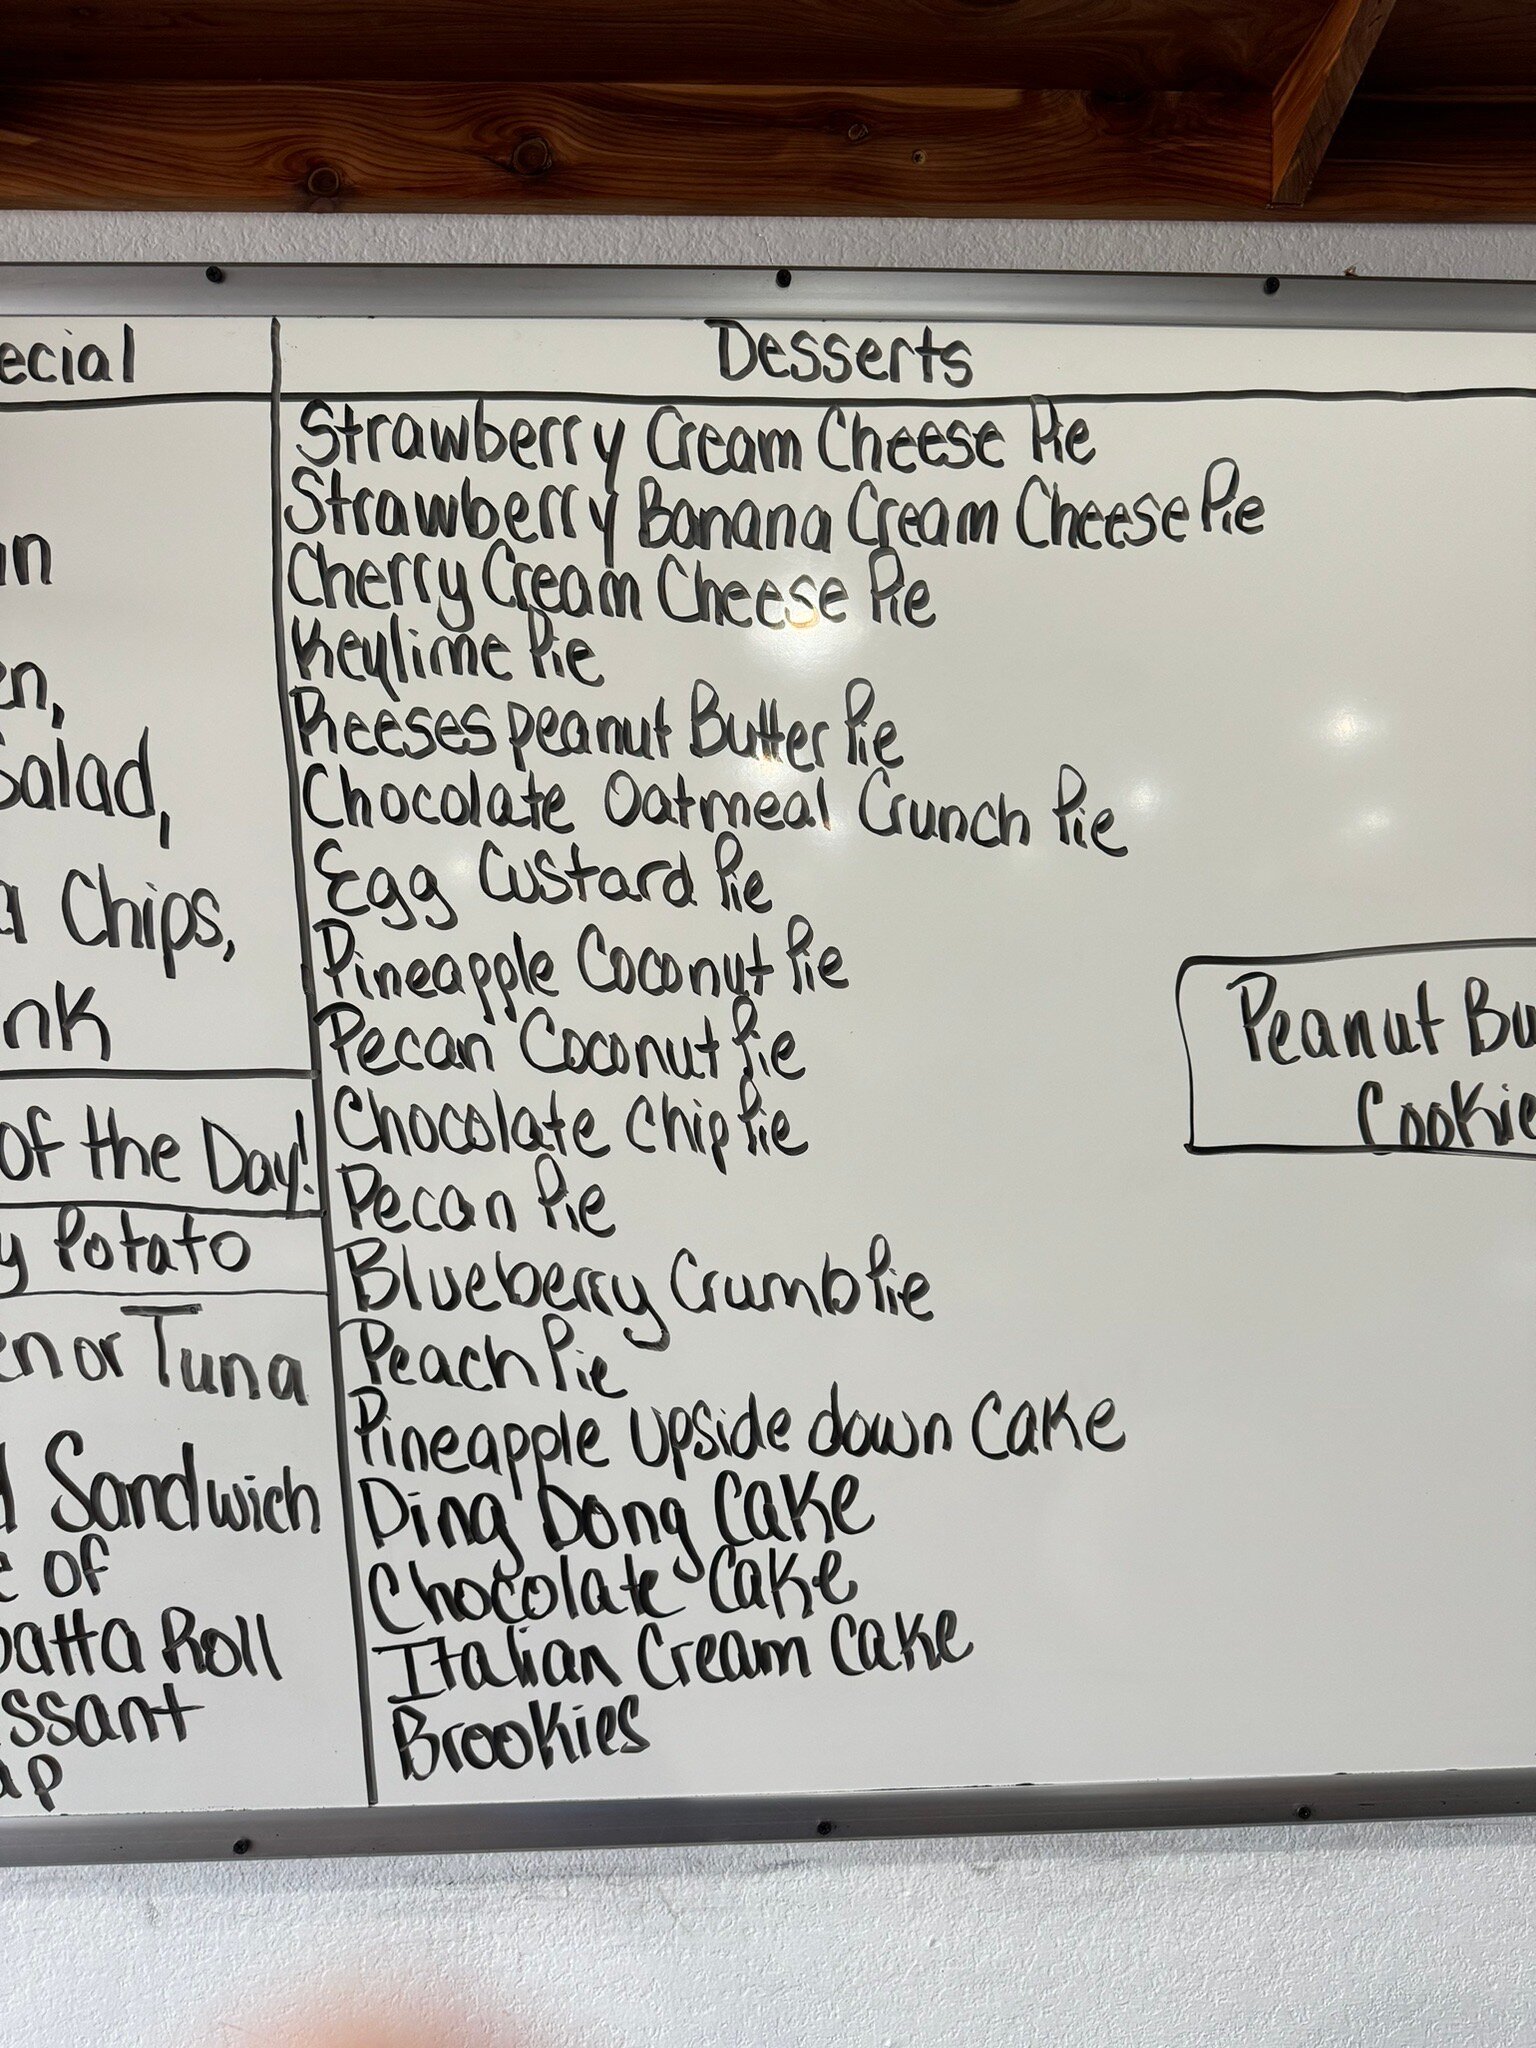 ecial
in
en,
Salad,
a Chips,
nk
of the Day!
y Potato
en or Tuna
d Sandwich
e of
batta Roll
issant
ap
Desserts
Strawberry Cream Cheese Pie
Strawberry Banana Cream Cheese Pie
Cherry Cream Cheese Pie
Keylime Pie
Reeses peanut Butter Pie
Chocolate Oatmeal Crunch Pie
Egg Custard Pie
Pineapple Coconut Pie
Pecan Coconut Pie
Chocolate Chip Pie
Pecan Pie
Blueberry Crumb Pie
Peach Pie
Pineapple Upside down Cake
Ding Dong Cake
Chocolate Cake
Italian Cream Cake
Brookies
Peanut Bu
Cookie